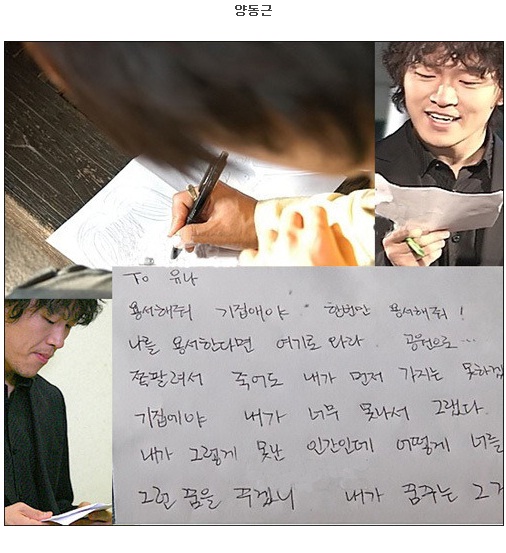 양동근
To 유나
용서해줘 기집애야. 한번만 용서해줘!
나를 용서한다면 여기로 와라. 공원으로…
쪽팔려서 죽어도 내가 먼저 가지는 못하겠
기집애야 내가 너무 못나서 그랬다.
내가 그렇게 못난 인간인데 어떻게 너를
그런 꿈을 꾸겠니 내가 꿈꾸는 그